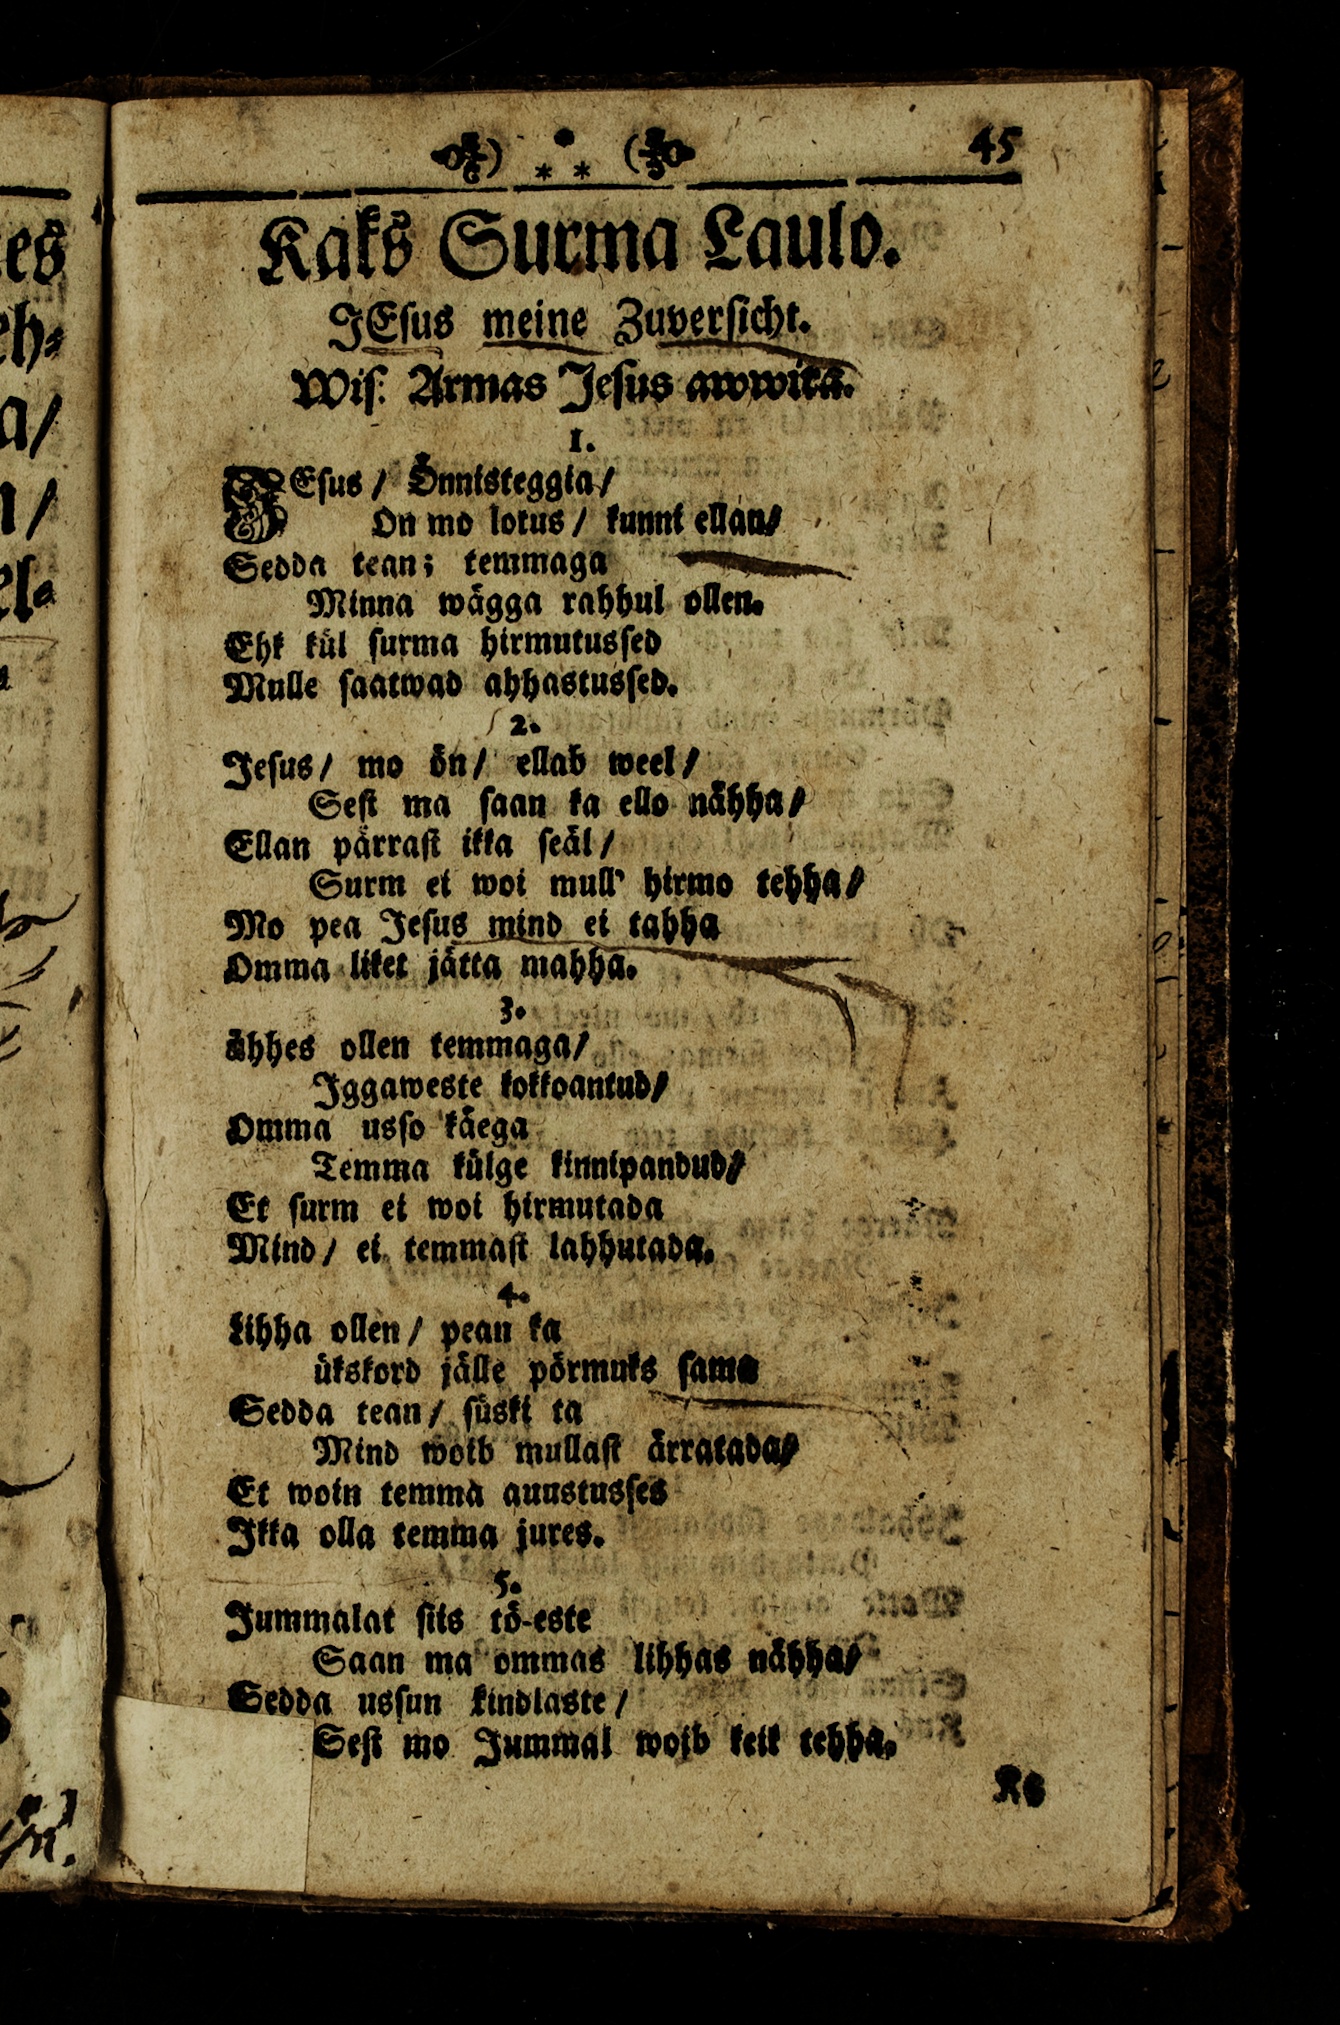 45
Kaks Surma Laulo.
JEsus meine Zuversicht.
Wis: Armas Jesus awwita.
1.
JEsus / Önnisteggia /
On mo lotus / kunni ellan /
Sedda tean; temmaga
Minna wägga rahhul ollen.
Ehk kül surma hirmutussed
Mulle saatwad ahhastussed.
2.
Jesus / mo ön / ellab weel /
Sest ma saan ka ello nähha /
Ellan pärrast ikka seäl /
Surm ei woi mull' hirmo tehha /
Mo pea Jesus mind ei tahha
Omma liket jätta mahha.
3.
ähhes ollen temmaga /
Iggaweste kokkoantud /
Omma usso käega
Temma külge kinnipandud /
Et surm ei woi hirmutada
Mind / ei temmast lahhutada.
4.
Lihha ollen / pean ka
ükskord jälle pörmuks sama
Sedda tean / süski ta
Mind woib mullast ärratada /
Et woin temma auustusses
Ikka olla temma jures.
5.
Jummalat sits tö-este
Saan ma ommas lihhas nähha /
Sedda ussun kindlaste /
Sest mo Jummal woib keik tehha.
es
eh-
a /
n /
el-